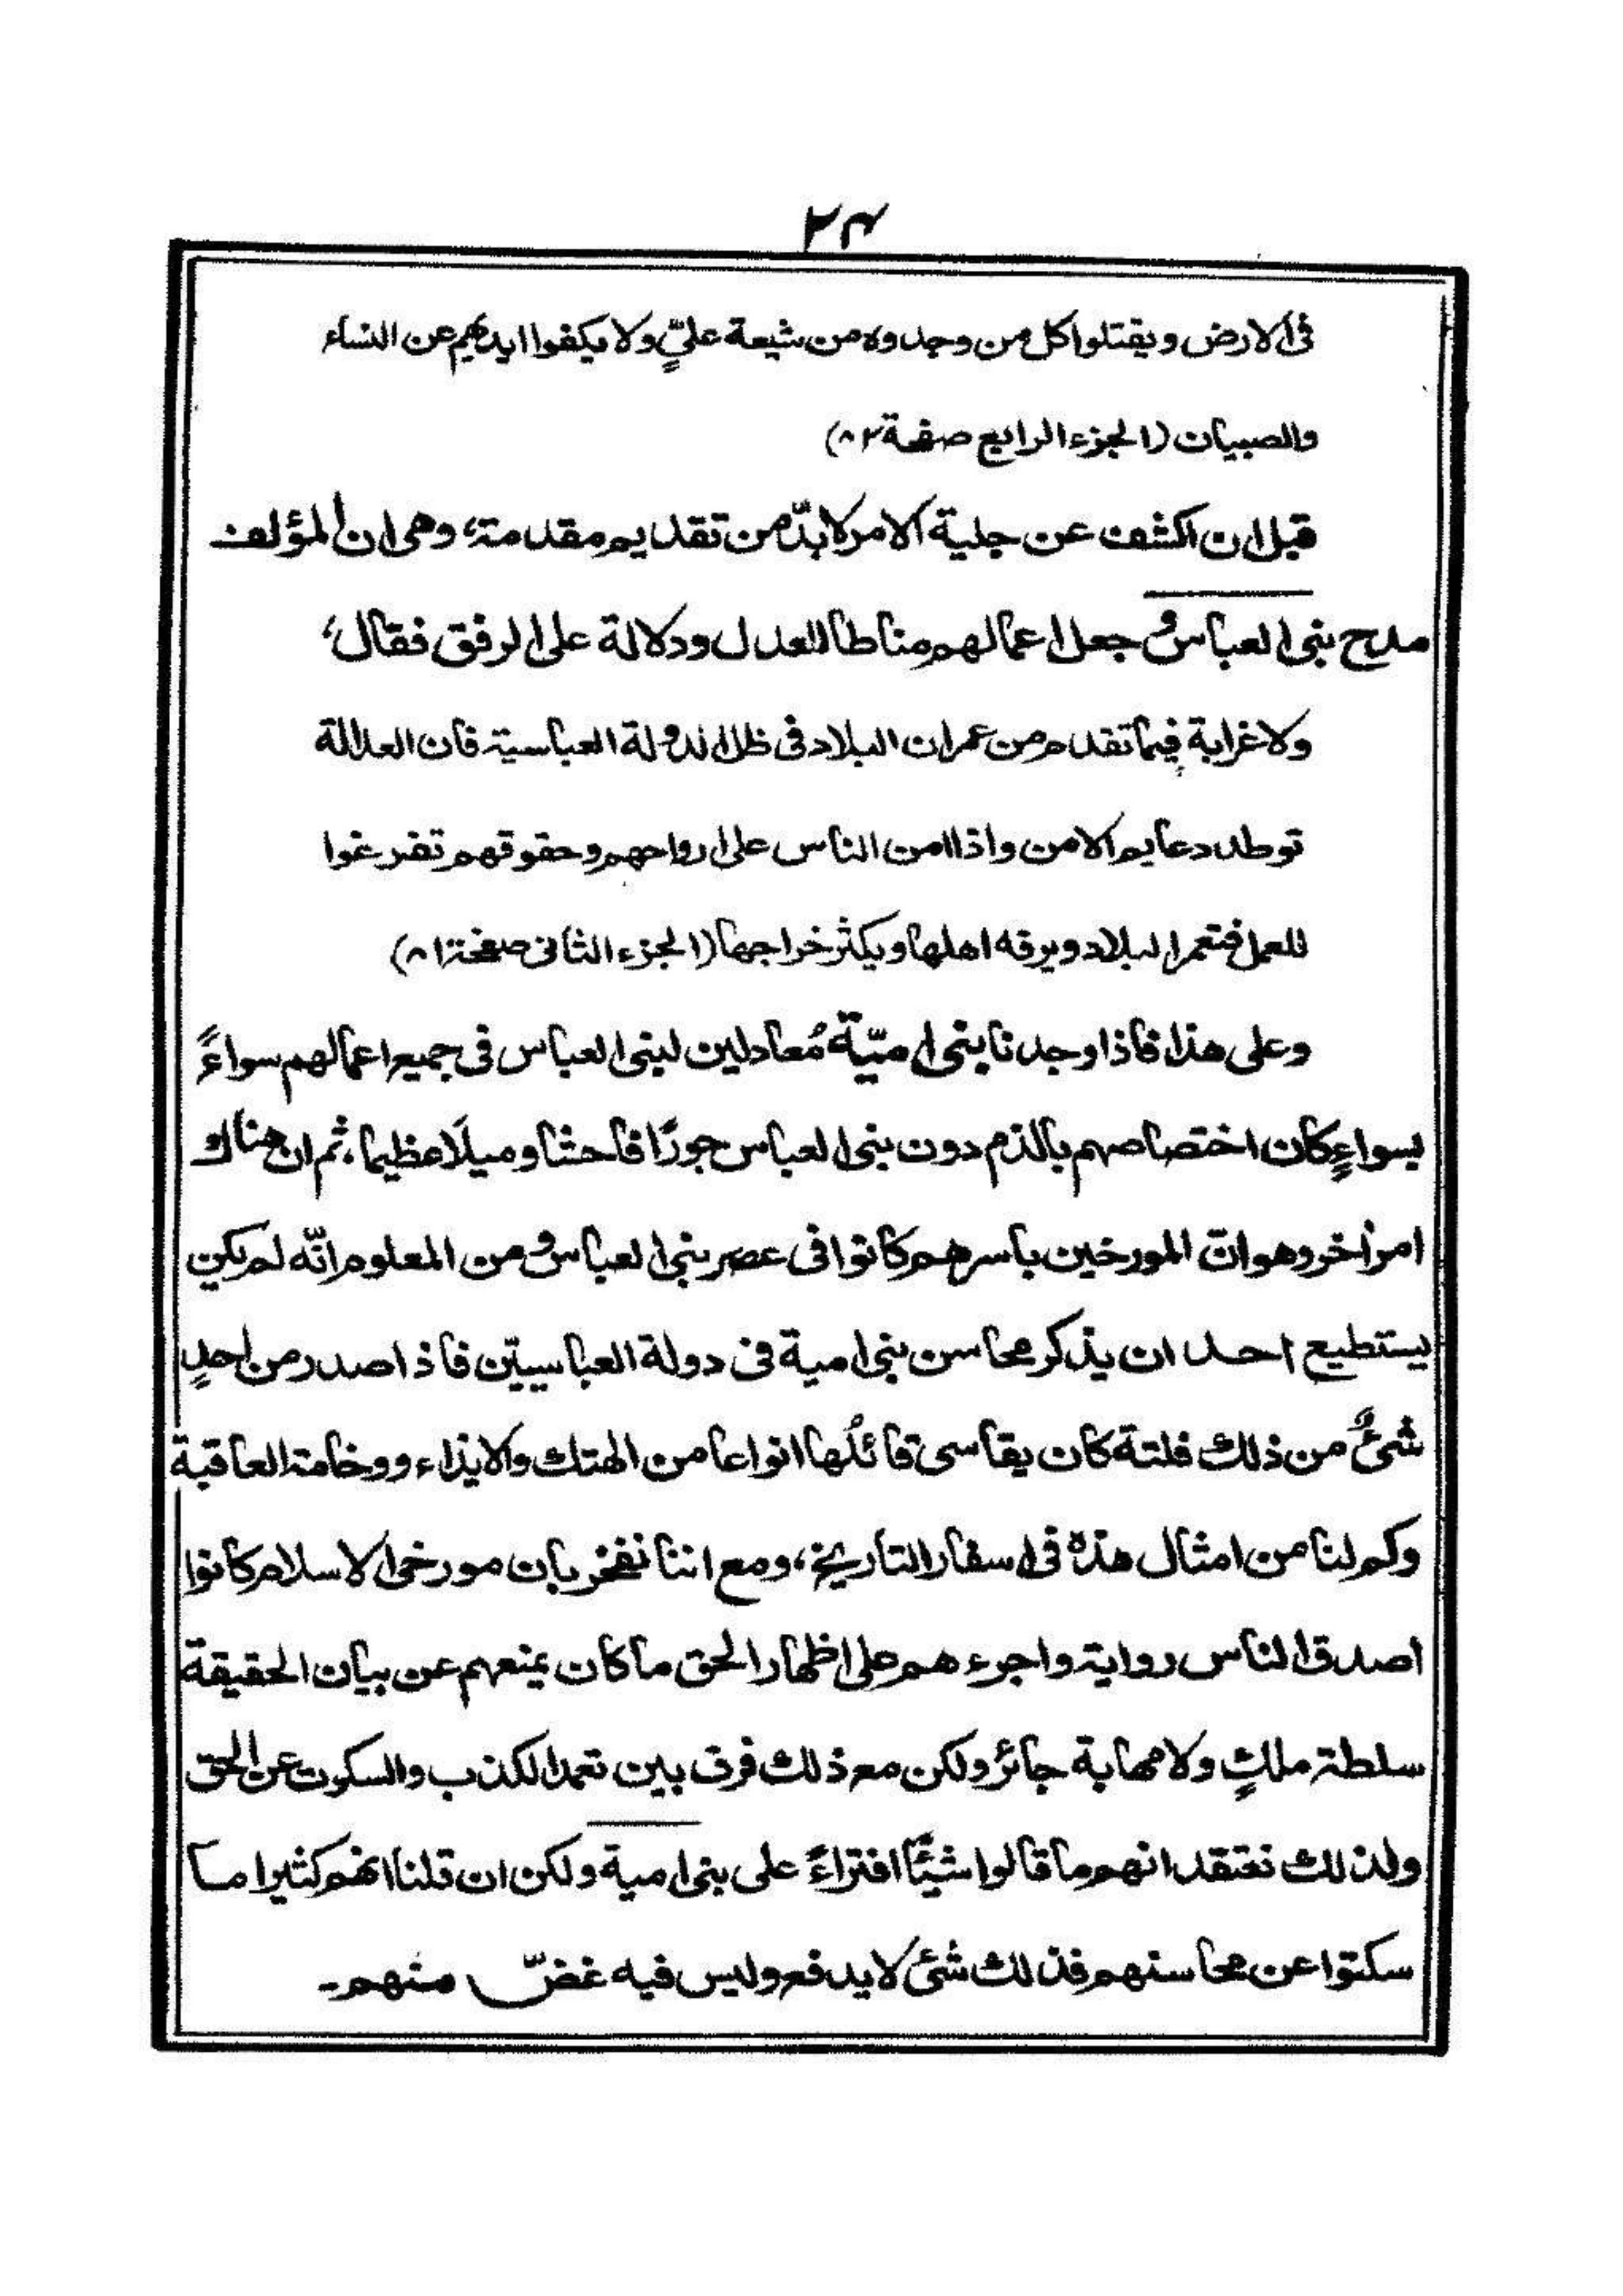 ٢٤
فى الارض ويقتلوا كل من وجدوه من شيعة علىٍّ ولا يكفوا ايديهم عن النساء
والصبيان (الجزء الرابع صفحة ٨٢)
قبل ان اكشف عن جلية الامر لا بدّ من تقديم مقدمة، وهى ان المؤلف
مدح بنى العباس و جعل اعمالهم مناطا للعدل ودلالة على الرفق فقال،
ولا غرابة فيما تقدم من عمران البلاد فى ظل الدولة العباسية فان العدالة
توطد دعايم الامن واذا امن الناس على ارواحهم وحقوقهم تفرغوا
للعمل فتعمر البلاد ويرفه اهلها ويكثر خراجها (الجزء الثانى صفحة ٨١)
وعلى هذا فاذا وجدنا بنى اميّة مُعادلين لبنى العباس فى جميع اعمالهم سواءً
بسواءٍ كان اختصاصهم بالذم دون بنى العباس جورًا فاحشا وميلًا عظيما، ثم ان هناك
امرا اخر وهو انّ المورخين باسرهم كانوا فى عصر بنى العباس و من المعلوم انّه لم يكن
يستطيع احد ان يذكر محاسن بنى امية فى دولة العباسيّين فاذا صدر من احدٍ
شئٌ من ذلك فلتة كان يقاسى قائلُها انواعا من الهتك والايذاء ووخامة العاقبة
وكم لنا من امثال هذه فى اسفار التاريخ، ومع اننا نفخر بان مورخى الاسلام كانوا
اصدق الناس رواية واجرءهم على اظهار الحق ما كان يمنعهم عن بيان الحقيقة
سلطة ملكٍ ولا مهابة جائر ولكن مع ذلك فرق بين تعمد الكذب والسكوت عن الحق
ولذلك نعتقد انهم ما قالوا شيئًا افتراءً على بنى امية ولكن ان قلنا انهم كثيرا ما
سكتوا عن محاسنهم فذلك شئ لا يدفع وليس فيه غضّ منهم۔